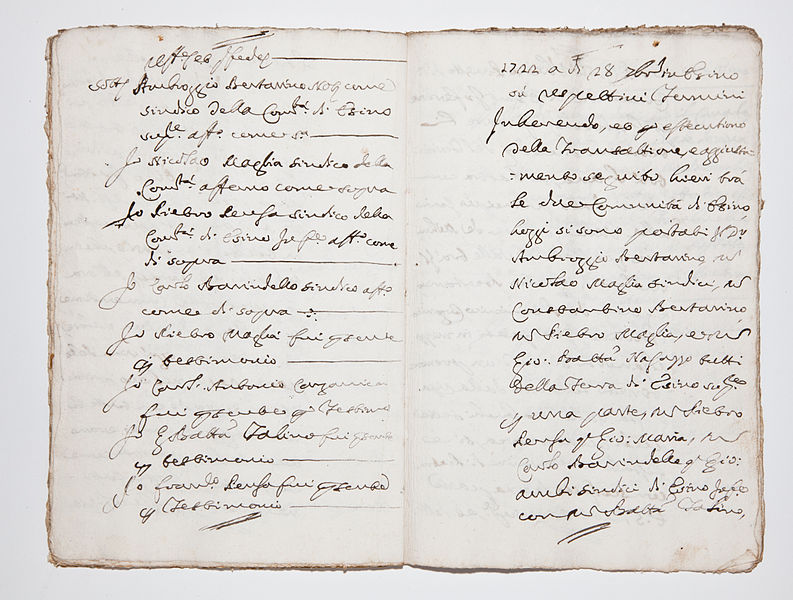 Ambroggio Bertarino Nob. come
sindico della Com.tà di Esino
sup.re aff.o come s.a
Io Nicolao Maglia sindico della
Com.tà affermo come sopra
Io Piebro Pensa sindico della
Com.tà di Esino Inf.re aff.o come
di sopra
Io Carlo Barindello sindico aff.o
come di sopra
Io Piebro Maglia fui presente
p testimonio
Io Carl. Antonio
fui presente p Testimo
Io G. Batta Talino fui presente
p testimonio
Io Pensa fui presente
p Testimonio
1722 a di 28 9bre in Esino
su respettivi Termini
Inherendo, et p essecutione
della Transattione, e aggiusta=
=mento seguito hieri trà
le due Comunità di Esino
hoggi si sono portati
Ambroggio Bertarino, mr
Nicolao Maglia sindici, mr
Constantino Bertarino
mr Piebro Maglia, e mr
Gio: Batta Nasazzo tutti
della Terra di Esino sup.re
p una parte, mr Piebro
Pensa q Gio: Maria, mr
Carlo Barindello q Gio:
ambi sindici di Esino Inf.re
con mr Batta Talino,